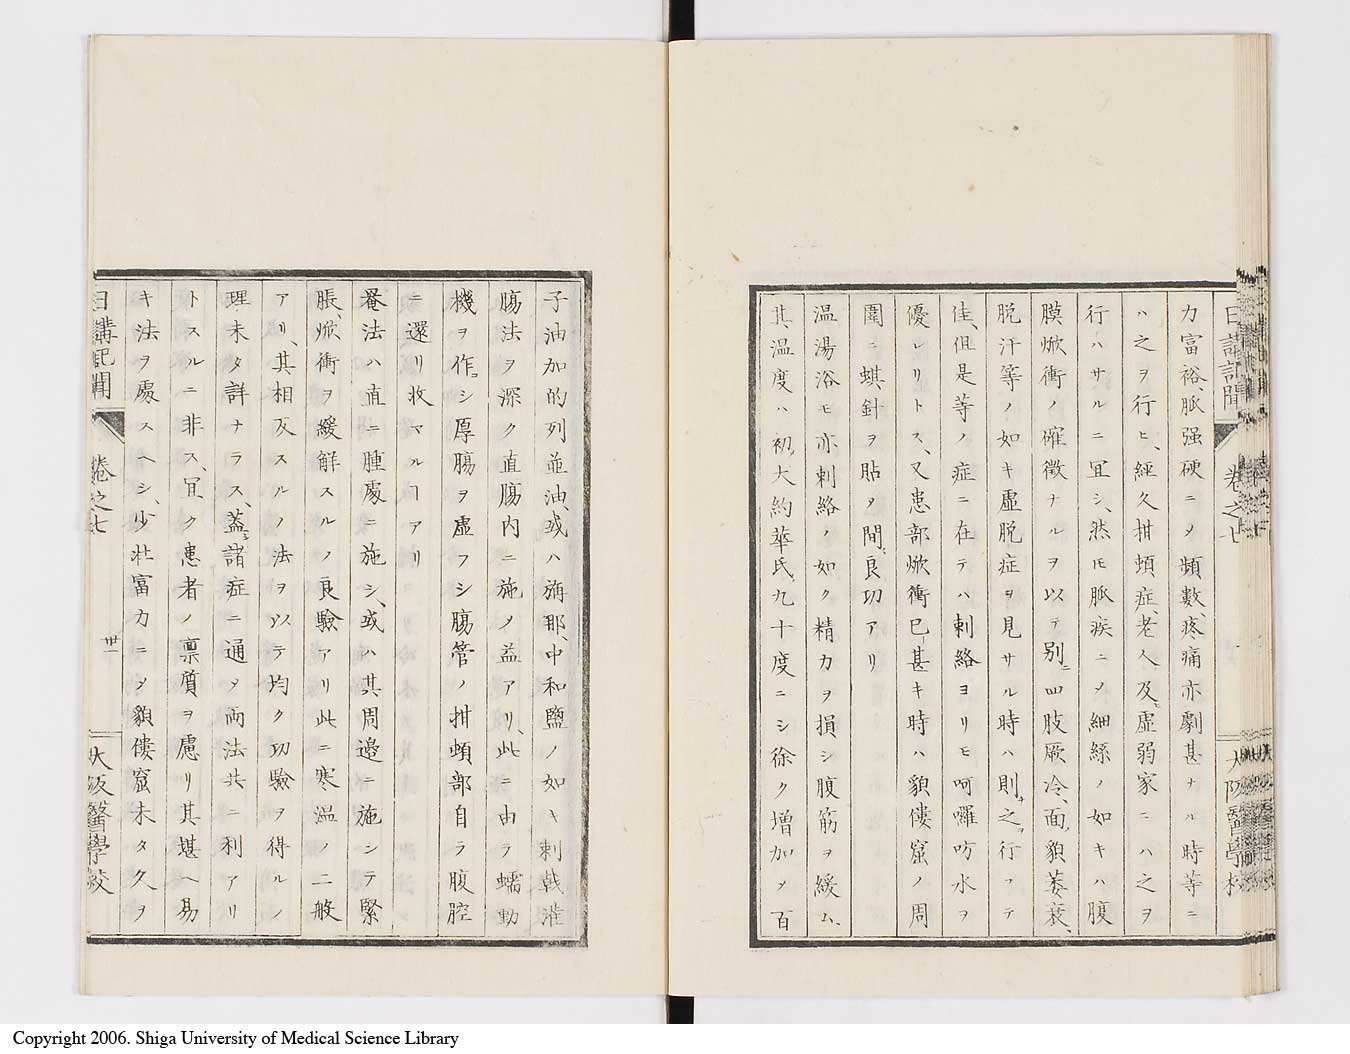 日講記聞
卷之七
大阪醫學校
力富裕、脈强硬ニ〆頻數、疼痛亦劇甚ナル時等ニ
ハ之ヲ行ヒ、經久拑頓症、老人及ヒ虛弱家ニハ之ヲ
行ハサルニ冝シ、然𪜈脈疾ニ〆細絲ノ如キハ腹
膜焮衝ノ確徵ナルヲ以テ別ニ四肢厥冷、面貌萎衰、
脱汗等ノ如キ虛脱症ヲ見サル時ハ則チ之ヲ行フテ
佳、但是等ノ症ニ在テハ刺絡ヨリモ呵囉吩水ヲ
優レリトス、又患部焮衝已ニ甚キ時ハ貌僂窟ノ周
圍ニ蜞針ヲ貼〆間〻良功アリ
温湯浴モ亦刺絡ノ如ク精力ヲ損シ腹筋ヲ緩ム、
其温度ハ初メ大約華氏九十度ニシ徐ク增加〆百
子油加的列並油、或ハ旃那、中和鹽ノ如キ刺戟灌
腸法ヲ深ク直腸內ニ施〆益アリ、此ニ由ラ蠕動
機ヲ作シ厚腸ヲ虛フシ腸管ノ拑頓部自ラ腹腔
ニ還リ收マルヿアリ
罨法ハ直ニ腫處ニ施シ、或ハ其周邊ニ施シテ緊
脹、焮衝ヲ緩解スルノ良驗アリ此ニ寒温ノ二般
アリ、其相反スルノ法ヲ以テ均ク功驗ヲ得ルノ
理未タ詳ナラス、蓋シ諸症ニ通〆両法共ニ利アリ
トスルニ非ス、冝ク患者ノ禀質ヲ慮リ其堪ヘ易
キ法ヲ處スヘシ、少壯富力ニ〆貌僂窟未タ久ヲ
日講記聞
卷之七
卅一
大阪醫學校
Copyright 2006. Shiga University of Medical Science Library